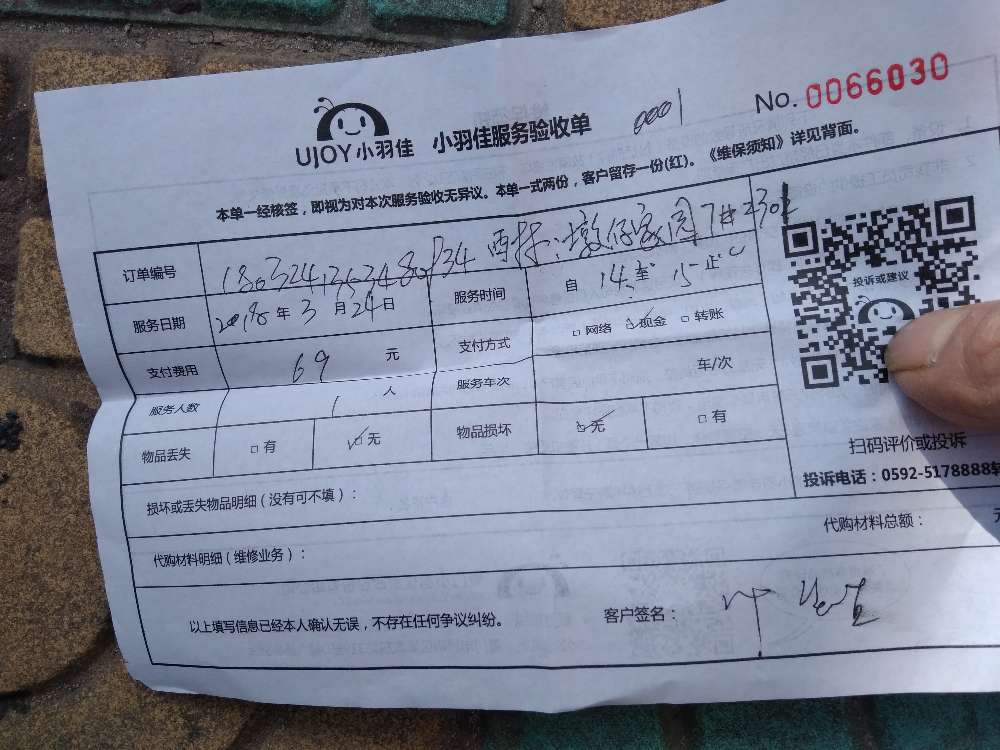 UJOY小羽佳 小羽佳服务验收单 0001 No. 0066030
本单一经核签，即视为对本次服务验收无异议。本单一式两份，客户留存一份(红)。《维保须知》详见背面。
订单编号
墩仔家园7#2301
服务日期 2018年 3 月 24 日 服务时间 自 14 至 15 止
支付费用 69 元 支付方式 □ 网络 ☑ 现金 □ 转账
服务人数 1 人 服务车次 车/次
物品丢失 □ 有 ☑ 无 物品损坏 ☑ 无 □ 有
投诉或建议
扫码评价或投诉
投诉电话：0592-5178888转
损坏或丢失物品明细（没有可不填）：
代购材料明细（维修业务）： 代购材料总额：
以上填写信息已经本人确认无误，不存在任何争议纠纷。 客户签名：